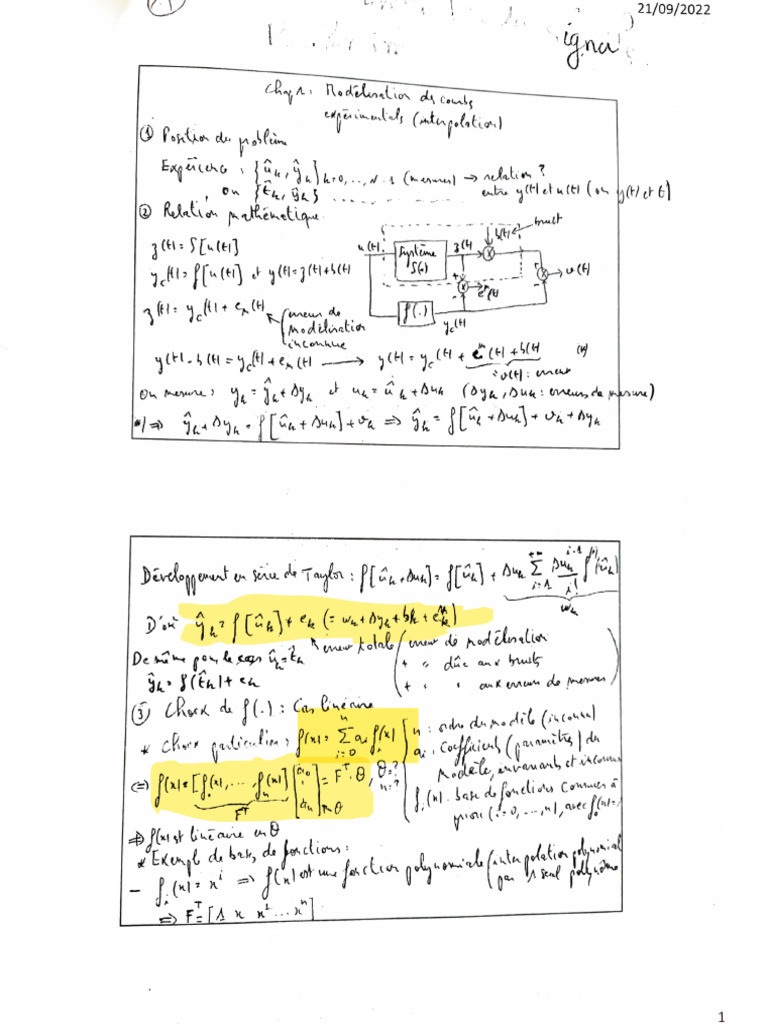 21/09/2022
Chap1: Modélisation de courbes
expérimentals (interpolation)
① Position du problème
Expérience : {û_k, ŷ_k}_{k=0,..,N-1} (mesures) → relation ?
ou {t̂_k, ŷ_k} ............ entre y(t) et u(t) (ou y(t) et t)
② Relation mathématique
z(t) = S[u(t)]
y_c(t) = f[u(t)] et y(t) = z(t) + b(t)
z(t) = y_c(t) + e_m(t)
erreur de
modélisation
inconnue
u(t) Système S(.) z(t) b(t) bruit
+ - e_m(t) + - v(t)
f(.) y_c(t)
y(t) - b(t) = y_c(t) + e_m(t) → y(t) = y_c(t) + e_m(t) + b(t) (*)
= v(t) : erreur
On mesure : y_k = ŷ_k + Δy_k et u_k = û_k + Δu_k (Δy_k, Δu_k : erreurs de mesure)
*) ⇒ ŷ_k + Δy_k = f[û_k + Δu_k] + v_k ⇒ ŷ_k = f[û_k + Δu_k] + v_k + Δy_k
Développement en série de Taylor : f[û_k + Δu_k] = f[û_k] + Δu_k Σ_{i=1}^{+∞} Δu_k^{i-1}/i! f^{(i)}(û_k)
w_k
D'où ŷ_k = f[û_k] + e_k (= w_k + Δy_k + b_k + e_k^m)
erreur totale (erreur de modélisation
+ " dûe aux bruits
+ " " aux erreurs de mesures)
De même pour le cas û_k = t̂_k
ŷ_k = f(t̂_k) + e_k
③ Choix de f(.) : Cas linéaire
* Choix particulier : f(x) = Σ_{i=0}^{n} a_i f_i(x)
n : ordre du modèle (inconnu)
a_i : Coefficients (paramètres) du
modèle, invariants et inconnus
f_i(x) : base de fonctions connues à
priori (i=0, ..., n), avec f_0(x) =
⇔ f(x) = [f_0(x), ..., f_n(x)] [a_0 ⋮ a_n] = F^T · θ, θ = ? n = ?
F^T θ
⇒ f(x) est linéaire en θ
* Exemple de bases de fonctions :
- f_i(x) = x^i ⇒ f(x) est une fonction polynomiale (interpolation polynomial
par 1 seul polynôme
⇒ F^T = [1 x x² ... x^n]
1